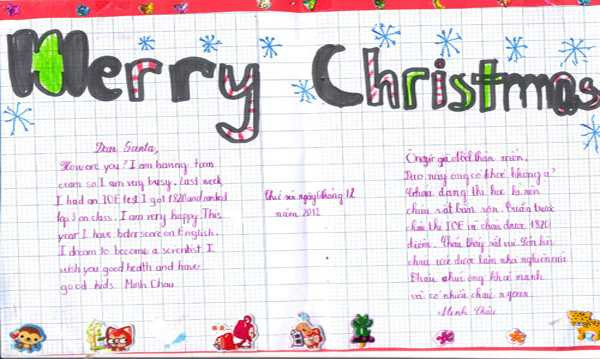 Merry Christmas
Dear Santa,
How are you? I am having term
exam so I am very busy. Last week
I had an IOE test I got 1820 and ranked
top 3 on class. I am very happy. This
year I have better score on English.
I dream to become a scientist. I
wish you good health and have
good kids. Minh Chau
Thứ ngày tháng 12
năm 2012
Ông già đô thân mến,
Dạo này ông có khoẻ không ạ?
Cháu đang thi học kì nên
cháu rất bận rộn. Tuần trước
cháu thi IOE và cháu được 1820
điểm. Cháu thấy rất vui.
cháu ước được làm nhà nghiên cứu
Cháu chúc ông khoẻ mạnh
và có nhiều cháu ngoan
Minh Châu